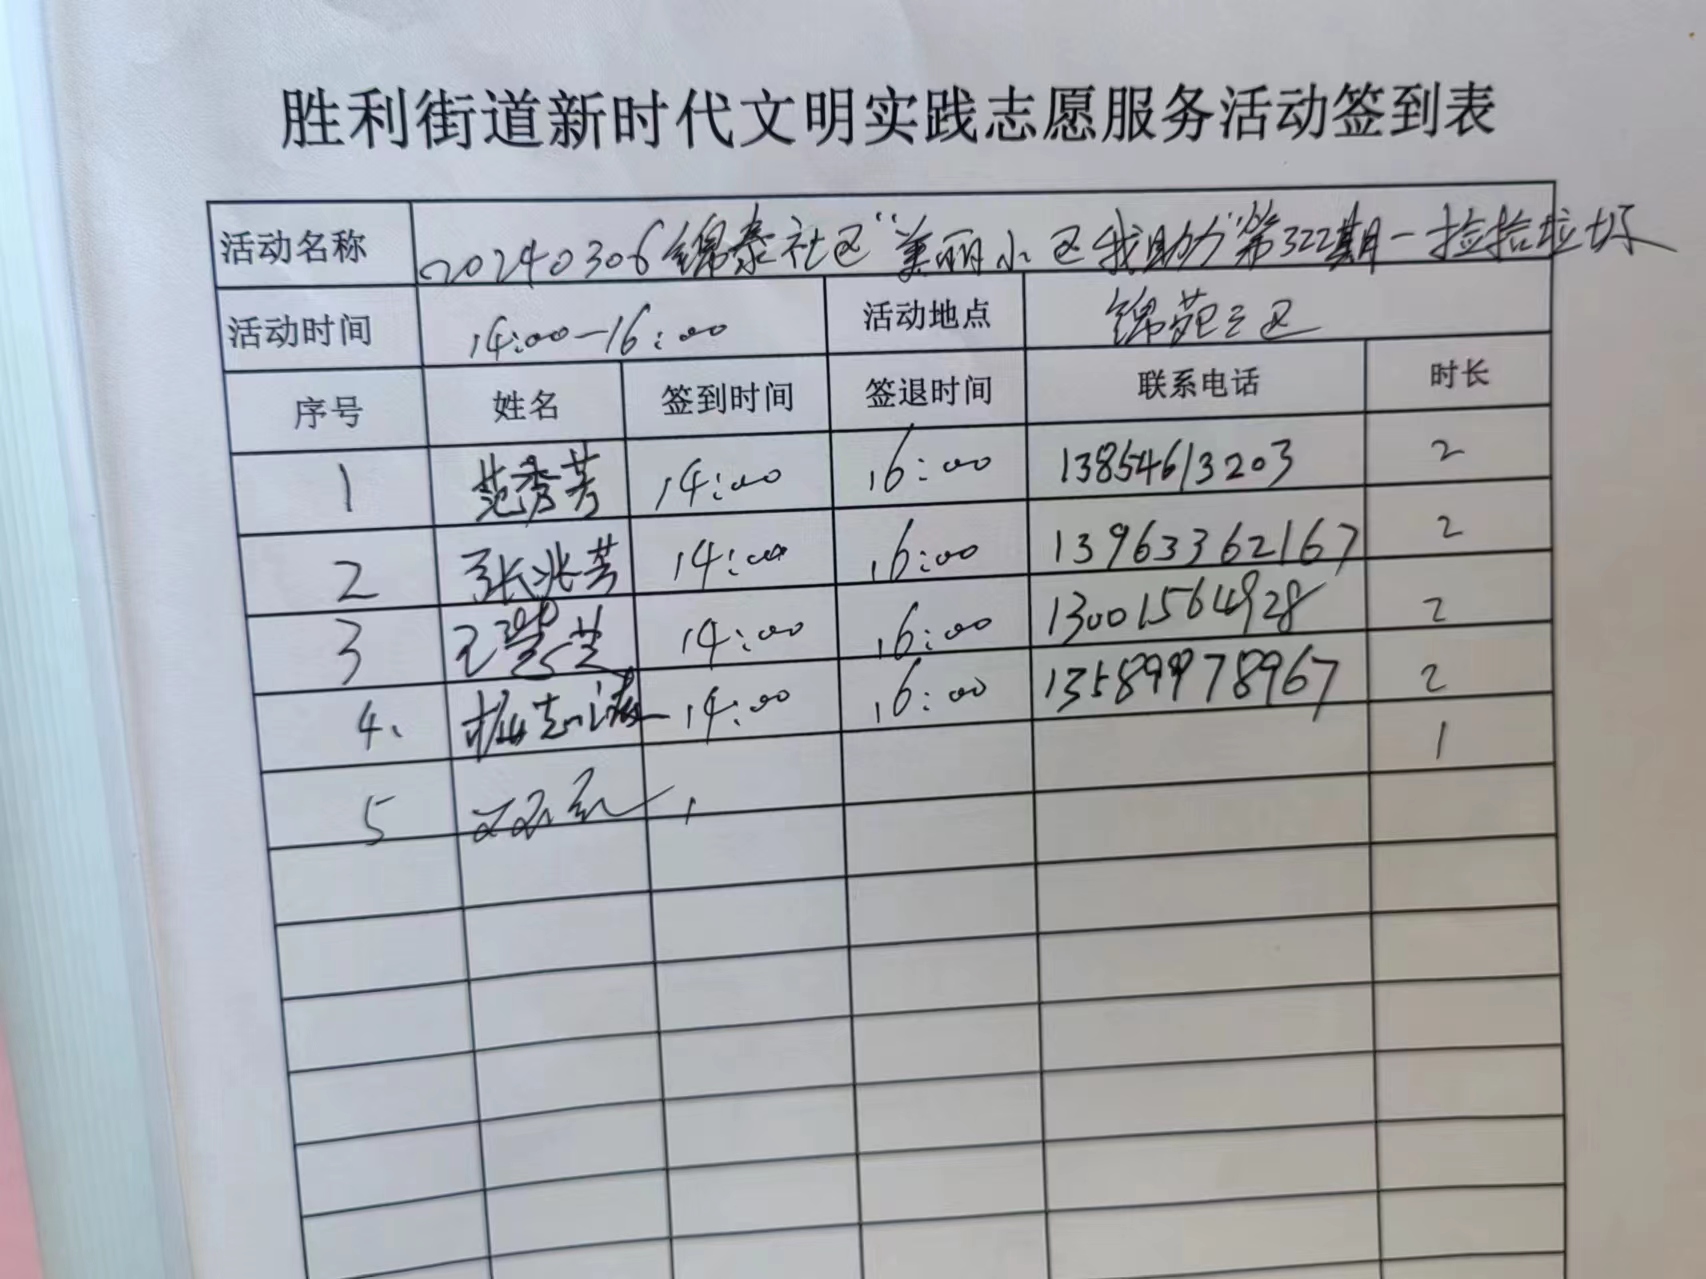 胜利街道新时代文明实践志愿服务活动签到表
活动名称 20240306锦泰社区“美丽小区我助力”第322期-捡拾垃圾
活动时间 14:00-16:00 活动地点 锦苑三区
序号 姓名 签到时间 签退时间 联系电话 时长
1 范秀芳 14:00 16:00 13854613203 2
2 张兆芳 14:00 16:00 13963362167 2
3 14:00 16:00 13001564928 2
4、 14:00 16:00 13589978967 2
1
5